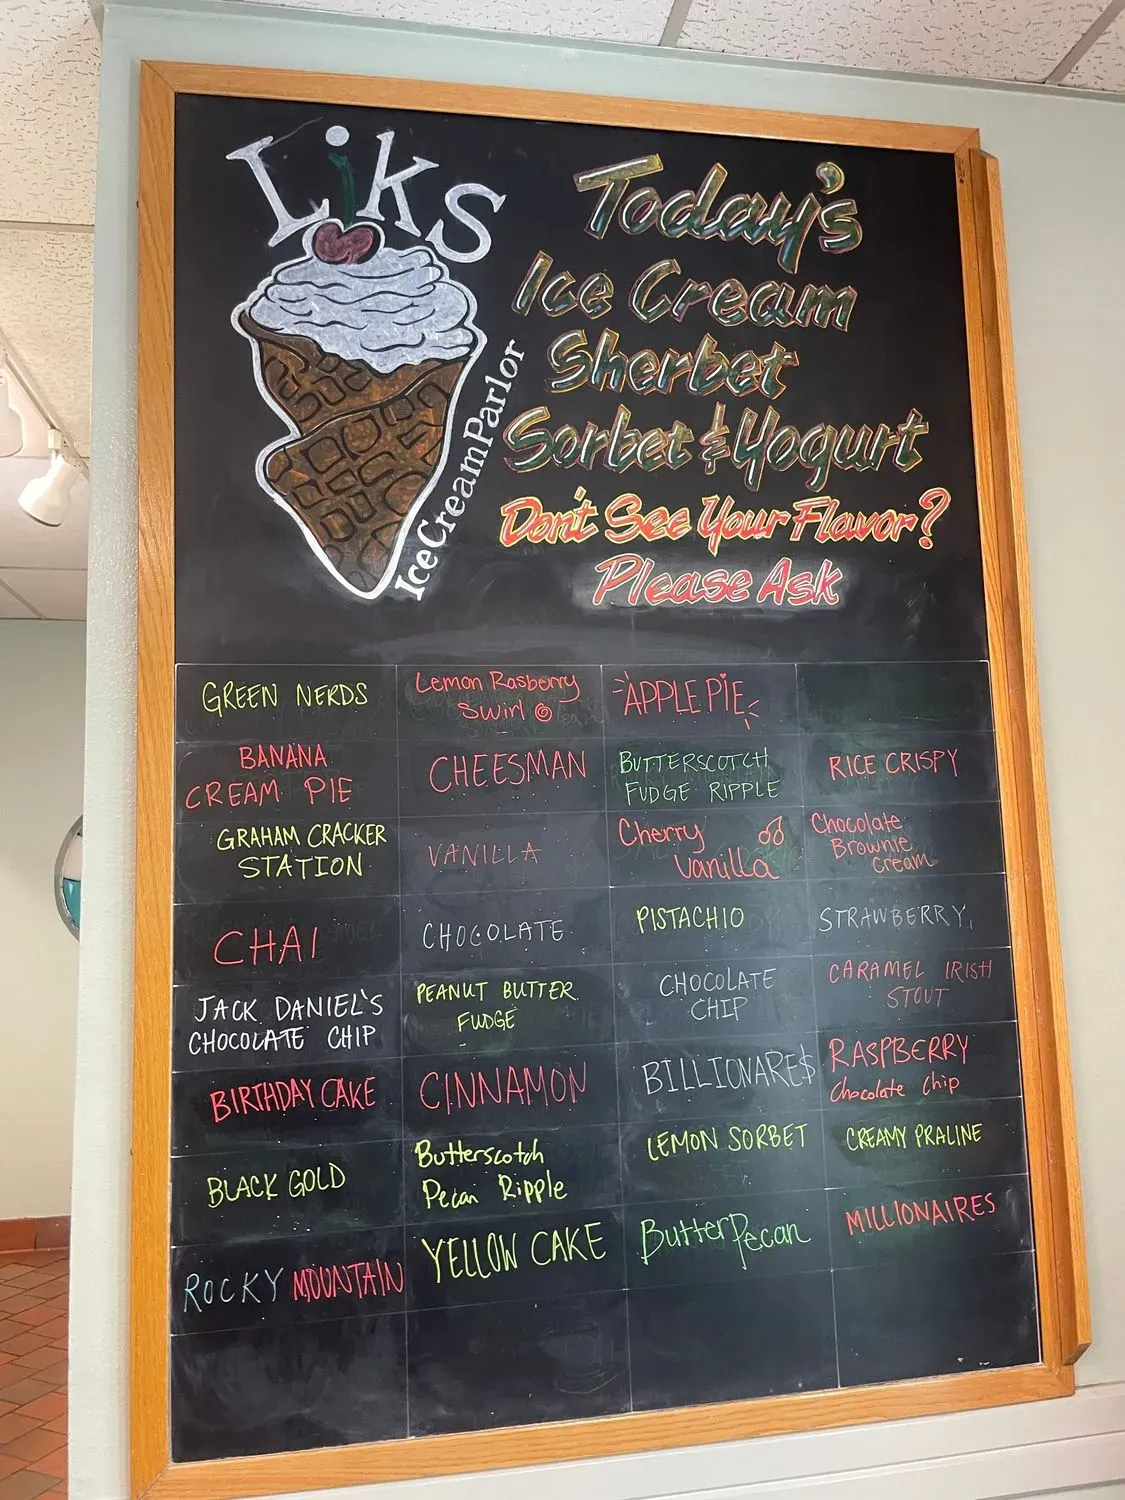 LiKS
IceCreamParlor
Today's
Ice Cream
Sherbet
Sorbet & Yogurt
Don't See Your Flavor?
Please Ask
GREEN NERDS
Lemon Rasberry
Swirl
APPLE PIE
BANANA
CREAM PIE
CHEESMAN
BUTTERSCOTCH
FUDGE RIPPLE
RICE CRISPY
GRAHAM CRACKER
STATION
VANILLA
Cherry
Vanilla
Chocolate
Brownie
Cream
CHAI
CHOCOLATE
PISTACHIO
STRAWBERRY
JACK DANIEL'S
CHOCOLATE CHIP
PEANUT BUTTER
FUDGE
CHOCOLATE
CHIP
CARAMEL IRISH
STOUT
BIRTHDAY CAKE
CINNAMON
BILLIONARE$
RASPBERRY
Chocolate Chip
BLACK GOLD
Butterscotch
Pecan Ripple
LEMON SORBET
CREAMY PRALINE
ROCKY MOUNTAIN
YELLOW CAKE
Butter Pecan
MILLIONAIRES